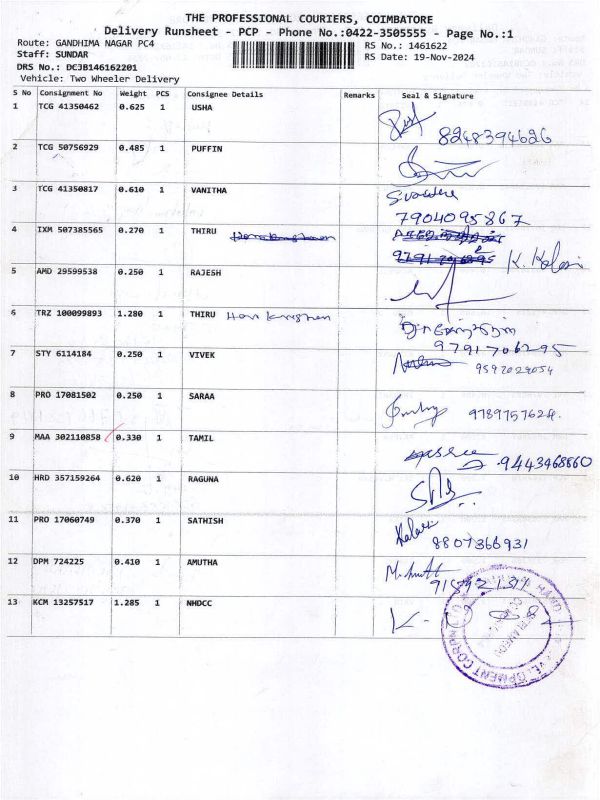 THE PROFESSIONAL COURIERS, COIMBATORE
Delivery Runsheet - PCP - Phone No.:0422-3505555 - Page No.:1
Route: GANDHIMA NAGAR PC4 RS No.: 1461622
Staff: SUNDAR RS Date: 19-Nov-2024
DRS No.: DCJB146162201
Vehicle: Two Wheeler Delivery
S No Consignment No Weight PCS Consignee Details Remarks Seal & Signature
1 TCG 41350462 0.625 1 USHA
8248394626
2 TCG 50756929 0.485 1 PUFFIN
3 TCG 41350817 0.610 1 VANITHA
7904095867
4 IXM 507385565 0.270 1 THIRU
K. Kalai
5 AMD 29599538 0.250 1 RAJESH
6 TRZ 100099893 1.280 1 THIRU Hari Krishnan
9791706295
7 STY 6114184 0.250 1 VIVEK
9597029054
8 PRO 17081502 0.250 1 SARAA
9789757628.
9 MAA 302110858 0.330 1 TAMIL
9443468860
10 HRD 357159264 0.620 1 RAGUNA
11 PRO 17060749 0.370 1 SATHISH
Kalai
8807366931
12 DPM 724225 0.410 1 AMUTHA
13 KCM 13257517 1.285 1 NHDCC